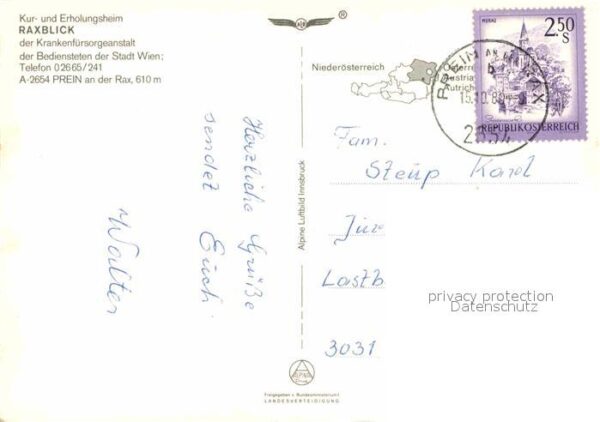 Kur- und Erholungsheim
RAXBLICK
der Krankenfürsorgeanstalt
der Bediensteten der Stadt Wien;
Telefon 02665/241
A-2654 PREIN an der Rax, 610 m
Herzliche Grüße
sendet Euch
Walter
Alpine Luftbild Innsbruck
ALPINE
Freigegeben v. Bundesministerium f.
LANDESVERTEIDIGUNG
Niederösterreich
Österreich
Austria
Autriche
PREIN AN DER RAX
b
15.10.80
2654
MURAU
2.50
S
REPUBLIK ÖSTERREICH
Fam.
Steup Karel
Lastb
3031
privacy protection
Datenschutz